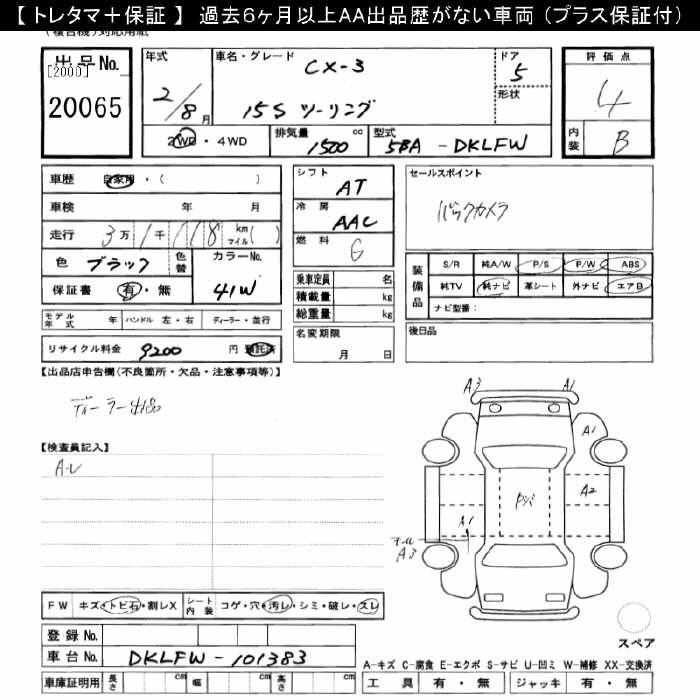 【トレタマ＋保証】 過去6ヶ月以上AA出品歴がない車両（プラス保証付）
(複合機)対応用紙
出品No.
[2000]
20065
年式
2/8月
車名・グレード
CX-3
15S ツーリング
ドア
5
形状
評価点
4
内装 B
2WD・4WD
排気量 1500 cc
型式 5BA-DKLFW
車歴 自家用・( )
車検 年 月
走行 3万1千118 km マイル( )
色 ブラック 色替
カラーNo.
41W
保証書 有・無
モデル年式 年 ハンドル 左・右 ディーラー・並行
リサイクル料金 9200 円 預託済
シフト AT
冷房 AAC
燃料 G
乗車定員 名
積載量 kg
総重量 kg
名変期限
月 日
セールスポイント
バックカメラ
装備品
S/R 純A/W P/S P/W ABS
純TV 純ナビ 革シート 外ナビ エアB
ナビ型番:
後日品
【出品店申告欄(不良箇所・欠品・注意事項等)】
ディーラー出品
【検査員記入】
FW キズ・トビ石・割レX
シート内装 コゲ・穴・汚レ・シミ・破レ・スレ
登録No.
車台No. DKLFW-101383
車庫証明用 長さ cm 幅 cm 高さ cm
A3 A1
A1
A2
A1
A3
スペア
A-キズ C-腐食 E-エクボ S-サビ U-凹ミ W-補修 XX-交換済
工具 有・無 ジャッキ 有・無